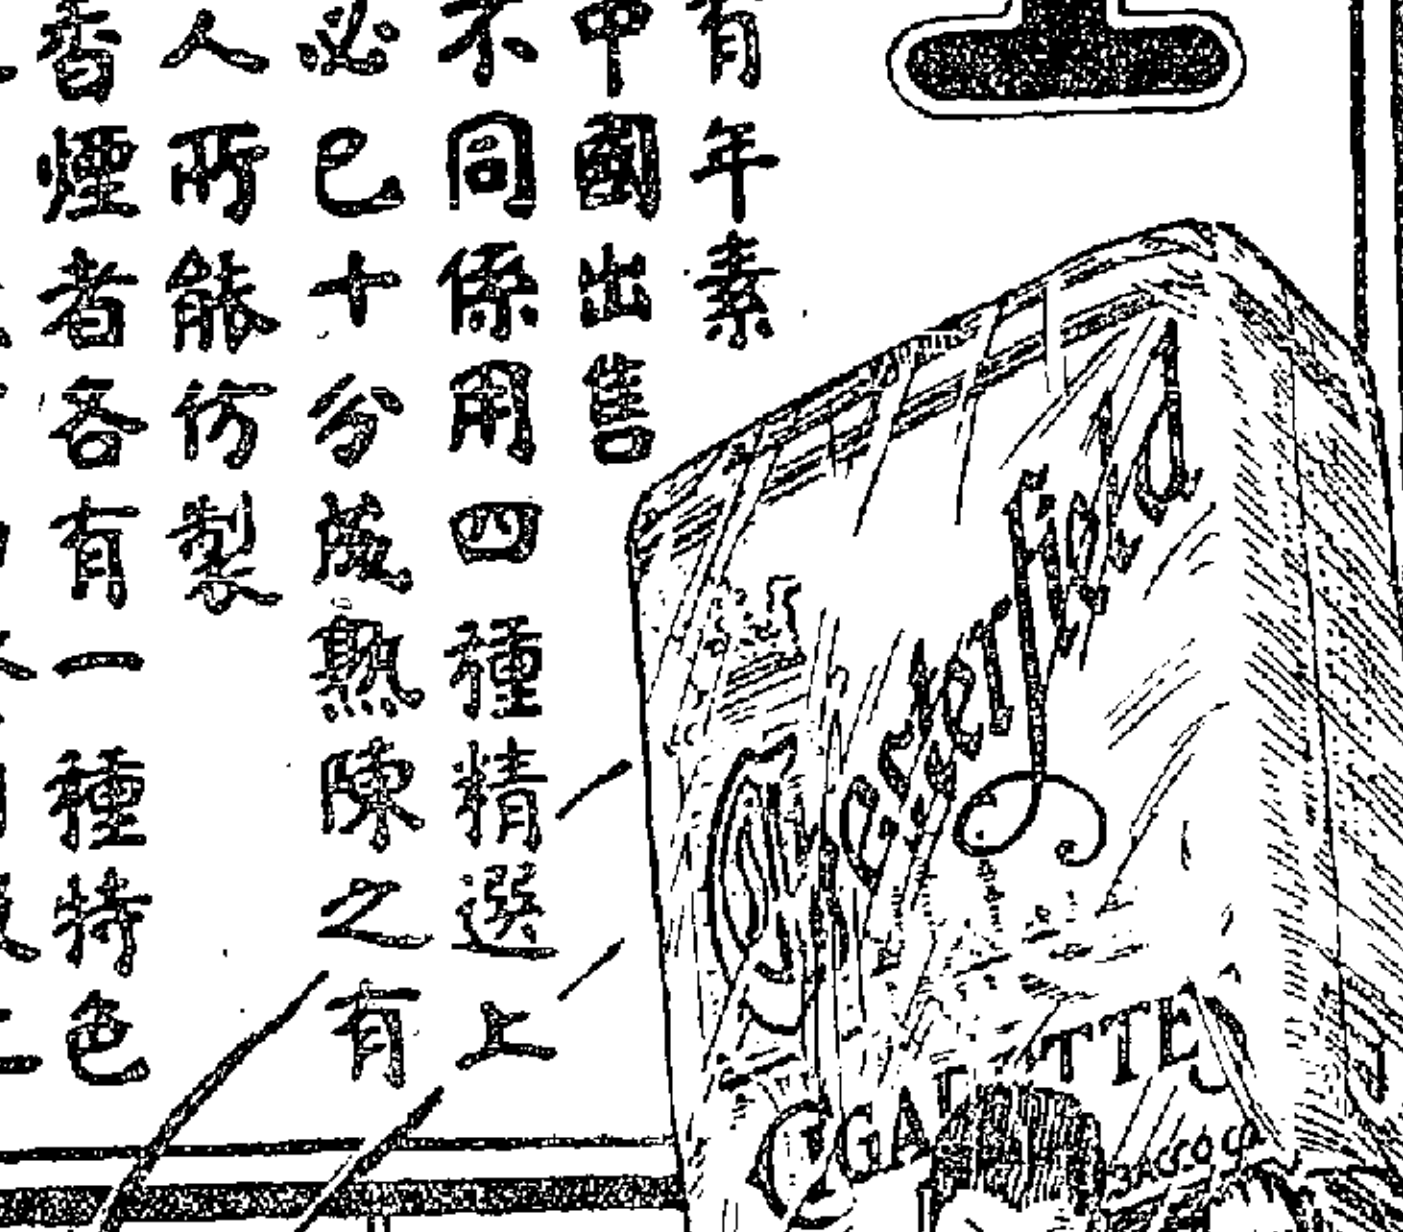 有年素
中國出售
不同係用四種精選上
必已十分成熟陳之有
人所能仿製
香煙者各有一種特色
Chesterfield
CIGARETTES